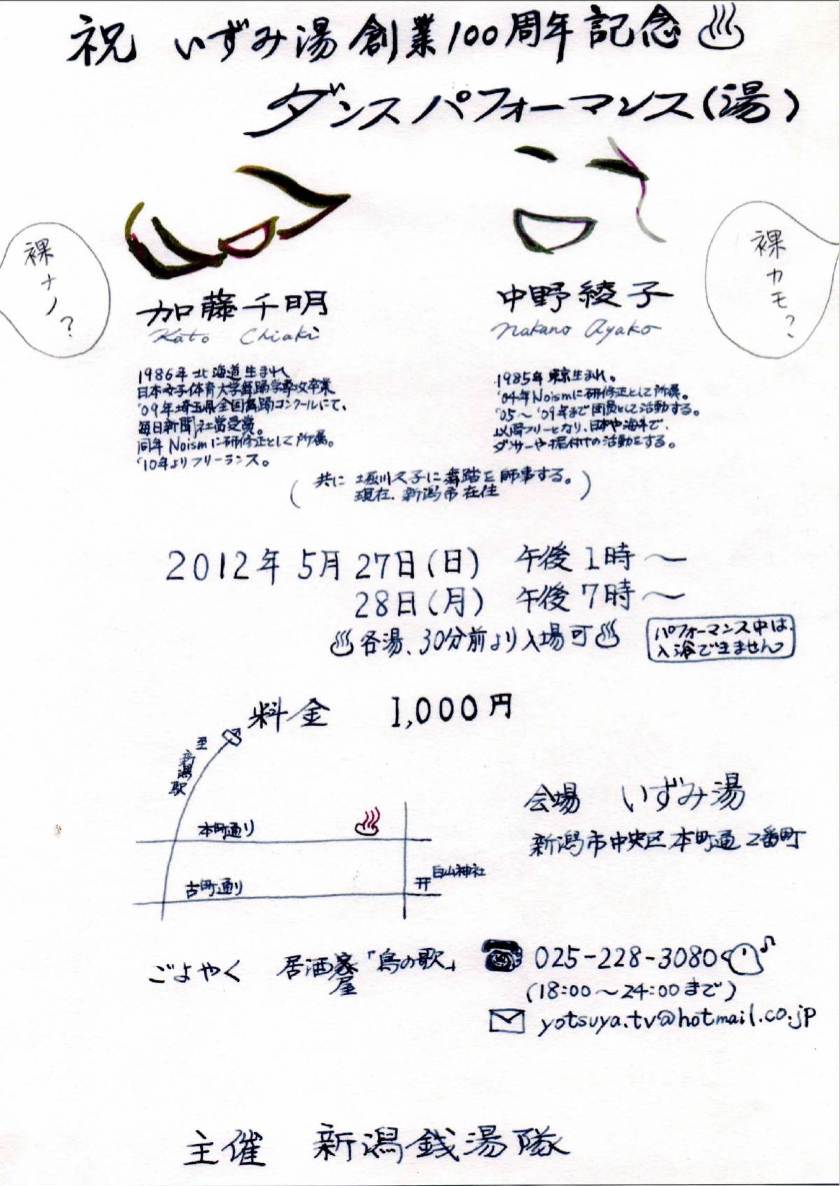 祝 いずみ湯創業100周年記念♨
ダンスパフォーマンス(湯)
裸ナノ?
裸カモ?
加藤千明
Kato Chiaki
1986年北海道生まれ
日本女子体育大学舞踊学専攻卒業
'09年埼玉県全国舞踊コンクールにて、
毎日新聞社賞受賞。
同年Noismに研修正として所属。
'10年よりフリーランス。
中野綾子
Nakano Ayako
1985年東京生まれ。
'04年Noismに研修正として所属。
'05〜'09年まで団員として活動する。
以降フリーとなり、日本や海外で、
ダサーや振付けの活動をする。
(共に 堀川久子に舞踏を師事する。
現在、新潟市在住)
2012年 5月27日(日) 午後1時〜
28日(月) 午後7時〜
♨各湯、30分前より入場可♨
パフォーマンス中は、
入浴できません
料金 1,000円
至新潟駅
本町通り
古町通り
白山神社
会場 いずみ湯
新潟市中央区本町通2番町
ごよやく 居酒屋「鳥の歌」
025-228-3080
(18:00〜24:00まで)
yotsuya.tv@hotmail.co.jp
主催 新潟銭湯隊